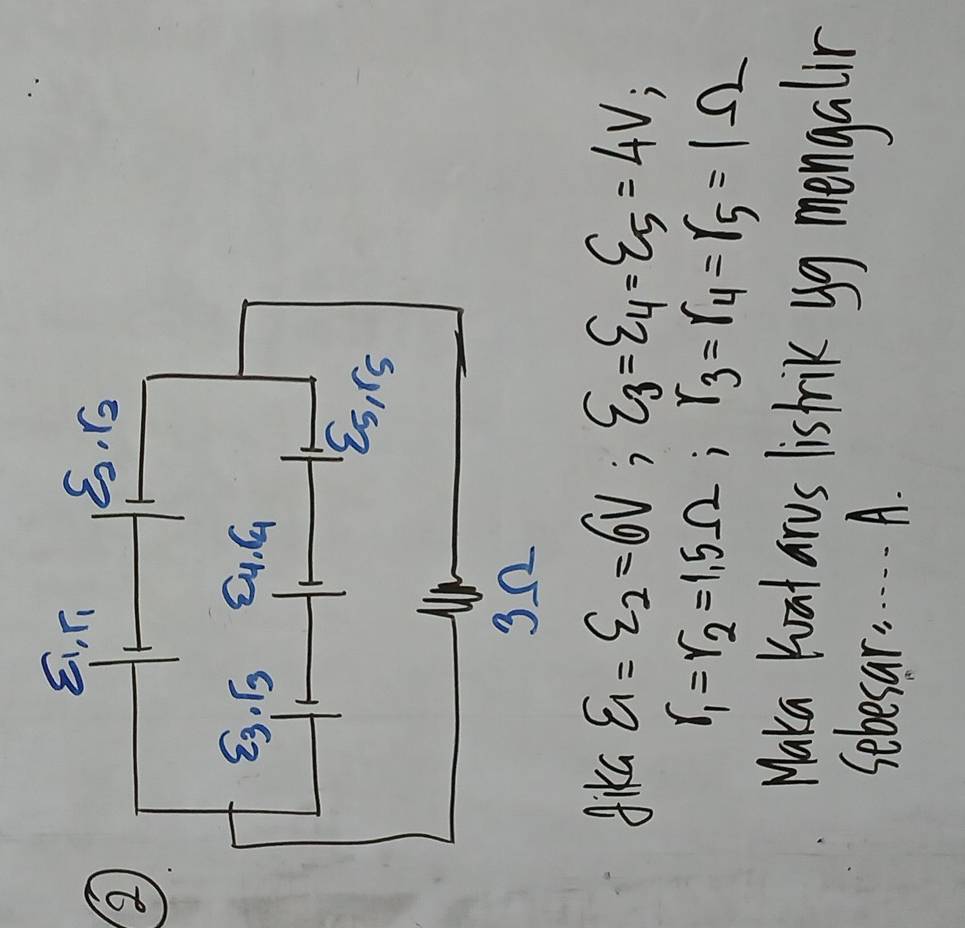 2
ε1,r1 ε2,r2
ε3,r3 ε4,r4 ε5,r5
3Ω
Jika ε1 = ε2 = 6V ; ε3 = ε4 = ε5 = 4V ;
r1 = r2 = 1,5Ω ; r3 = r4 = r5 = 1Ω
Maka Kuat arus listrik yg mengalir
Sebesar ...... A.